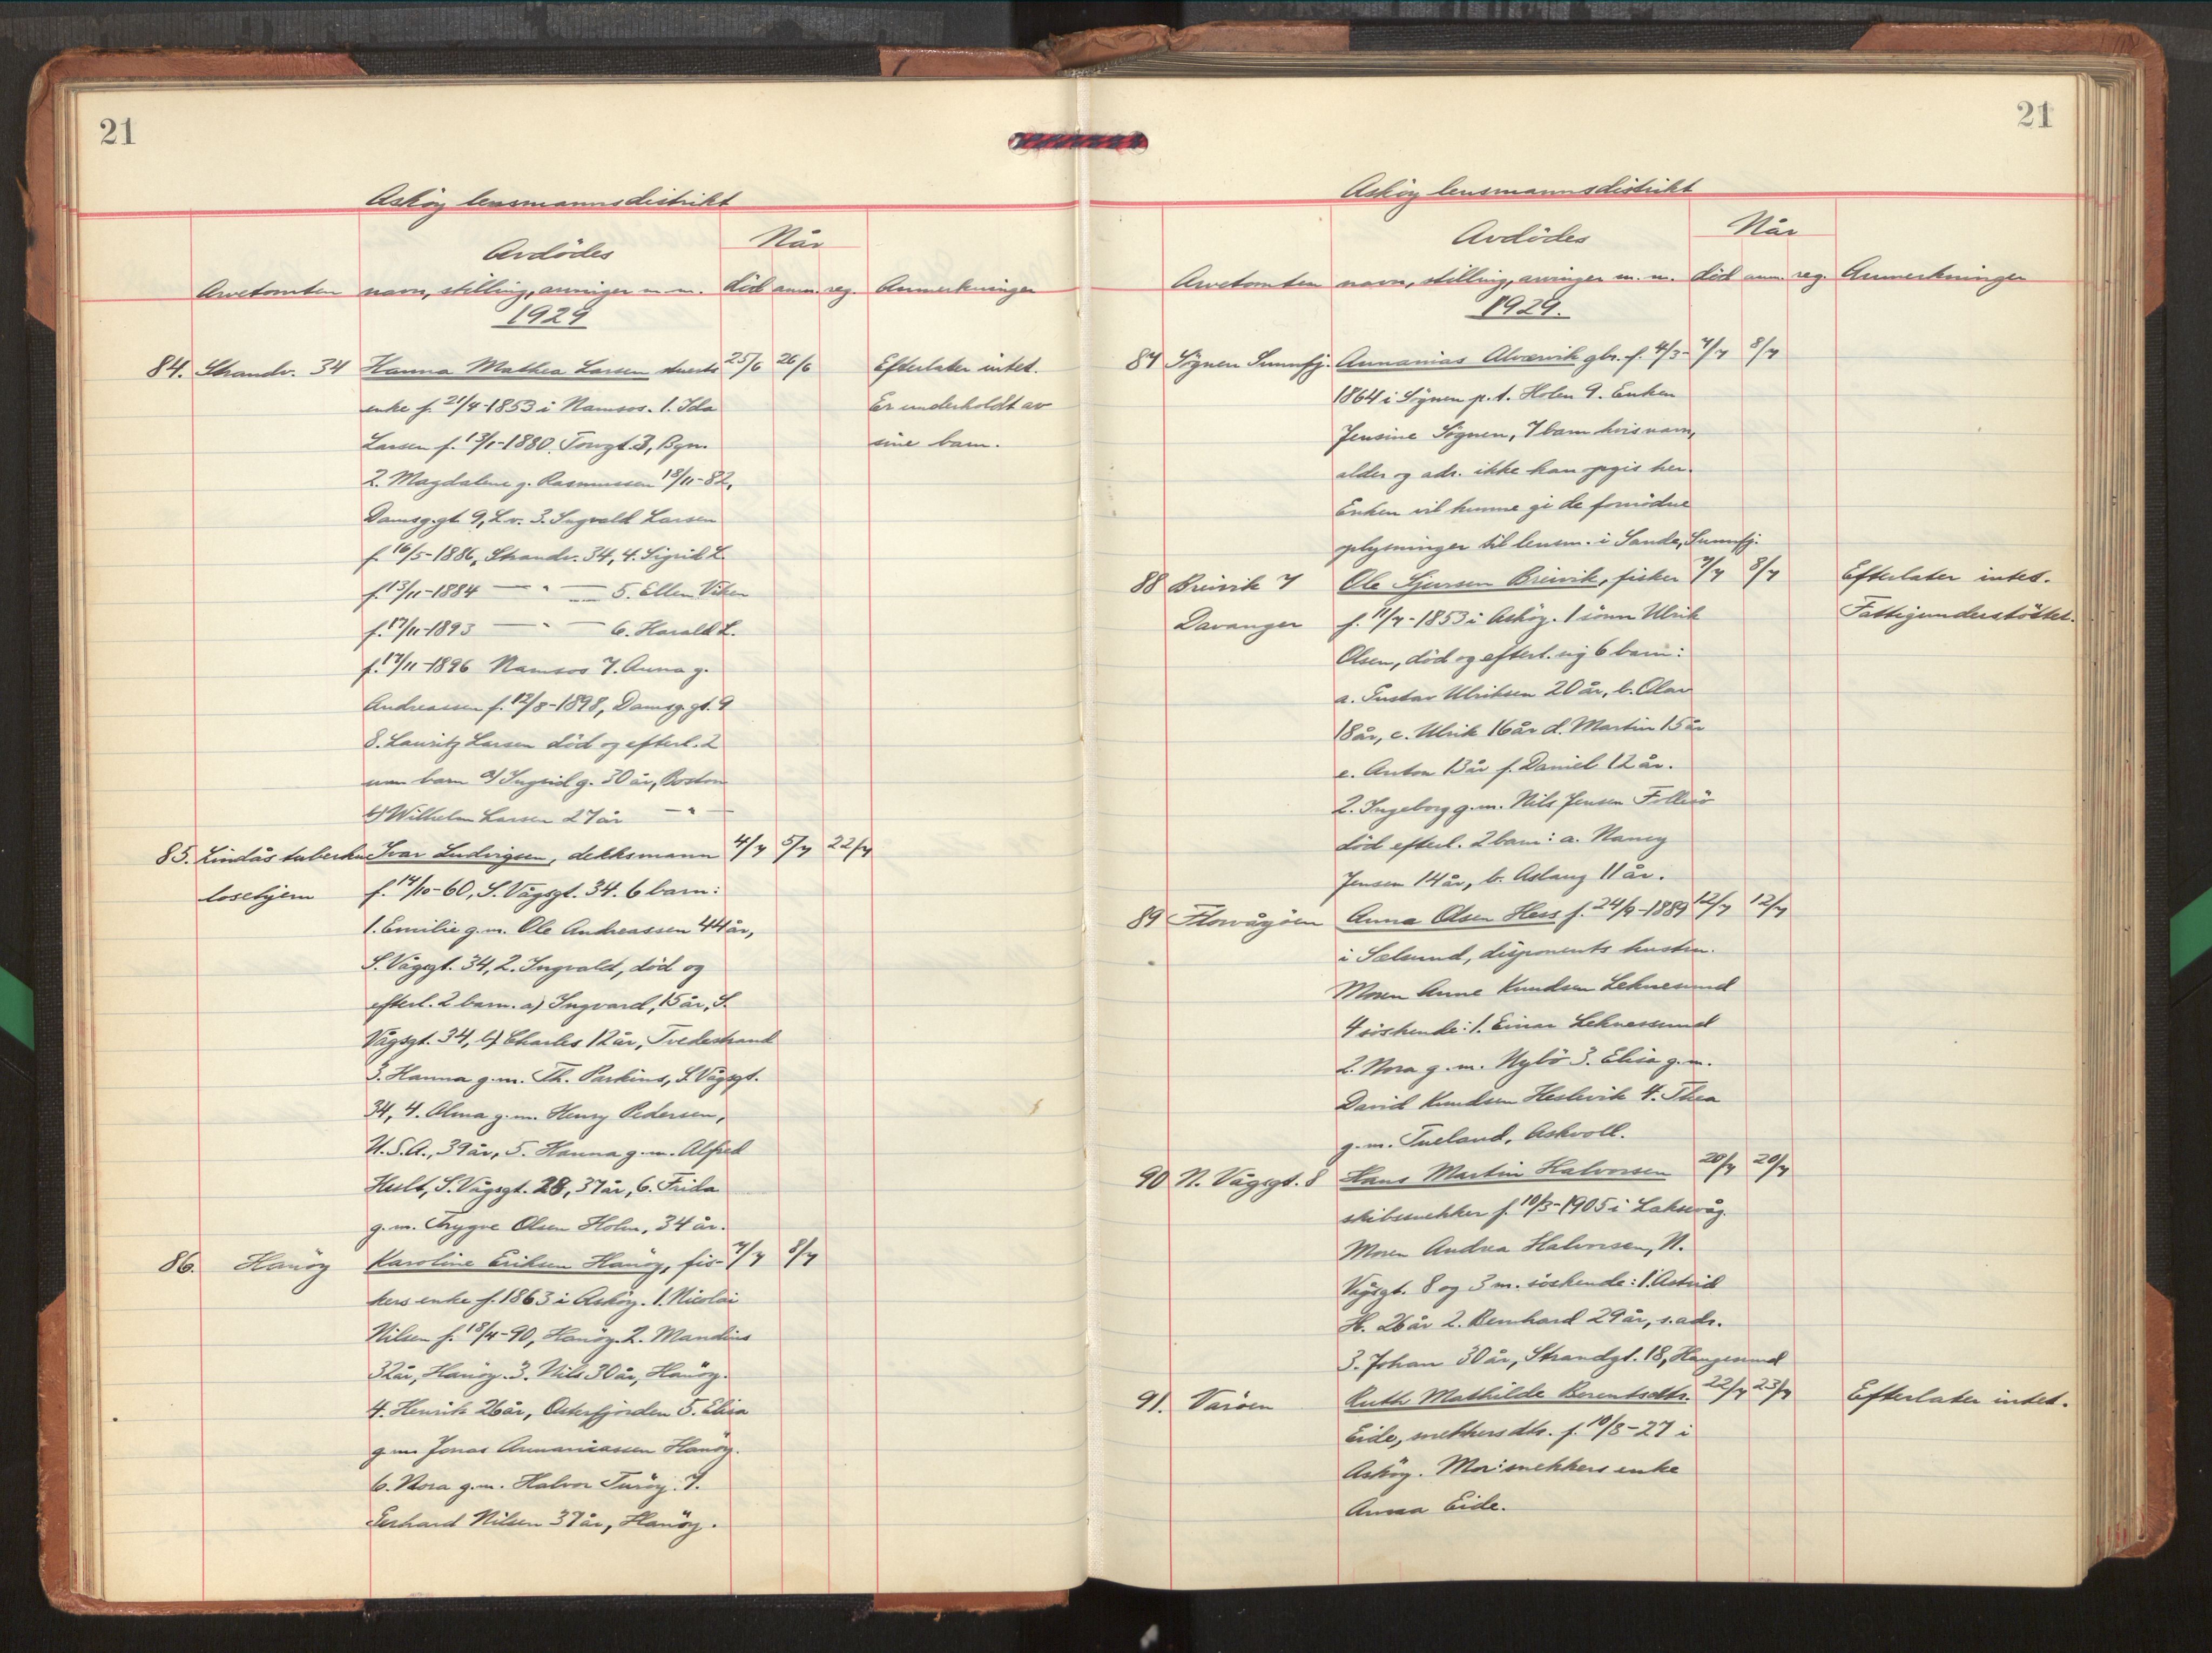 21
Askøy lensmannsdistrikt
Avdødes
Når
Arvetomten navn, stilling, arvinger m. m. død anm. reg. Anmerkninger
1929
84. Strandv. 34 Hanna Mathea Larsen stuerts 25/6 26/6 Efterlater intet.
enke f. 21/4-1853 i Namsos. 1. Ida Er underholdt av
Larsen f. 13/1-1880, Torvgt. 3, Bgn. sine barn.
2. Magdalene g. Rasmussen 18/11-82,
Damsg.gt. 9, L.v. 3. Ingvald Larsen
f. 16/5-1886, Strandv. 34, 4. Sigrid L.
f. 13/11-1884 — " — 5. Ellen Viken
f. 17/11-1893 — " — 6. Harald L.
f. 17/11-1896 Namsos 7. Anna g.
Andreassen f. 12/8-1898, Damsg.gt. 9
8. Lauritz Larsen død og efterl. 2
barn a) Ingrid g. 30 år, Boston
b) Wilhelm Larsen 27 år — " —
85. Lindås tuberku Ivar Ludvigsen, dekksmann 4/7 5/7 22/7
losehjem f. 14/10-60, S. Vågsgt. 34. 6 barn:
1. Emilie g.m. Ole Andreassen 44 år,
S. Vågsgt. 34, 2. Ingvald, død og
efterl. 2 barn. a) Ingvard, 15 år, S.
Vågsgt. 34, b) Charles 12 år, Tvedestrand
3. Hanna g.m. Th. Parkins, S. Vågsgt.
34, 4. Olma g.m. Henry Pedersen,
U.S.A., 39 år, 5. Hanna g.m. Alfred
Hult, S. Vågsgt. 28, 37 år, 6. Frida
g.m. Trygve Olsen Holm, 34 år.
86. Hanøy Karoline Eriksen Hanøy, fis- 7/7 8/7
kers enke f. 1863 i Askøy. 1. Nicolai
Nilsen f. 18/4-90, Hanøy. 2. Mandius
32 år, Hanøy. 3. Nils 30 år, Hanøy.
4. Henrik 26 år, Osterfjorden 5. Elisa
g.m. Jonas Annaniassen Hanøy.
6. Nora g.m. Halvor Turøy. 7.
Gerhard Nilsen 37 år, Hanøy.
21
Askøy lensmannsdistrikt
Avdødes
Når
Arvetomten navn, stilling, arvinger m. m. død anm. reg. Anmerkninger
1929.
87 Sygnen Sunnfj. Annanias Alværvik gbr. f. 4/3- 7/7 8/7
1864 i Sygnen p.t. Holen 9. Enken
Jensine Sygnen, 7 barn hvis navn,
alder og adr. ikke kan opgis her.
Enken vil kunne gi de fornødne
oplysninger til lensm. i Sande, Sunnfj.
88 Breivik 7 Ole Sjursen Breivik, fisker 7/7 8/7 Efterlater intet.
Davanger f. 11/7-1853 i Askøy. 1 sønn Ulrik Fattigunderstøttet.
Olsen, død og efterl. sig 6 barn:
a. Gustav Ulriksen 20 år, b. Olav
18 år, c. Ulrik 16 år d. Martin 15 år
e. Anton 13 år f. Daniel 12 år.
2. Ingeborg g.m. Nils Jensen Follesø
død efterl. 2 barn: a. Nancy
Jensen 14 år, b. Aslaug 11 år.
89 Florvågøen Anna Olsen Hess f. 24/9-1889 12/7 12/7
i Solsund, disponents hustru.
Moren Anne Knudsen Leknesund
4 søskende: 1. Einar Leknessund
2. Nora g.m. Nybø 3. Elisa g.m.
David Knudsen Heslevik 4. Thea
g.m. Tueland, Askvoll.
90 N. Vågsgt. 8 Hans Martin Halvorsen 20/7 20/7
skibssnekker f. 10/3-1905 i Laksevåg.
Moren Andrea Halvorsen, N.
Vågsgt. 8 og 3 m. søskende: 1. Astrid
H. 26 år 2. Bernhard 29 år, s. adr.
3. Johan 30 år, Strandgt. 18, Haugesund
91. Varøen Ruth Mathilde Berentsdtr. 22/7 23/7 Efterlater intet.
Eide, snekkers dtr. f. 10/8-27 i
Askøy. Mor: snekkers enke
Anna Eide.